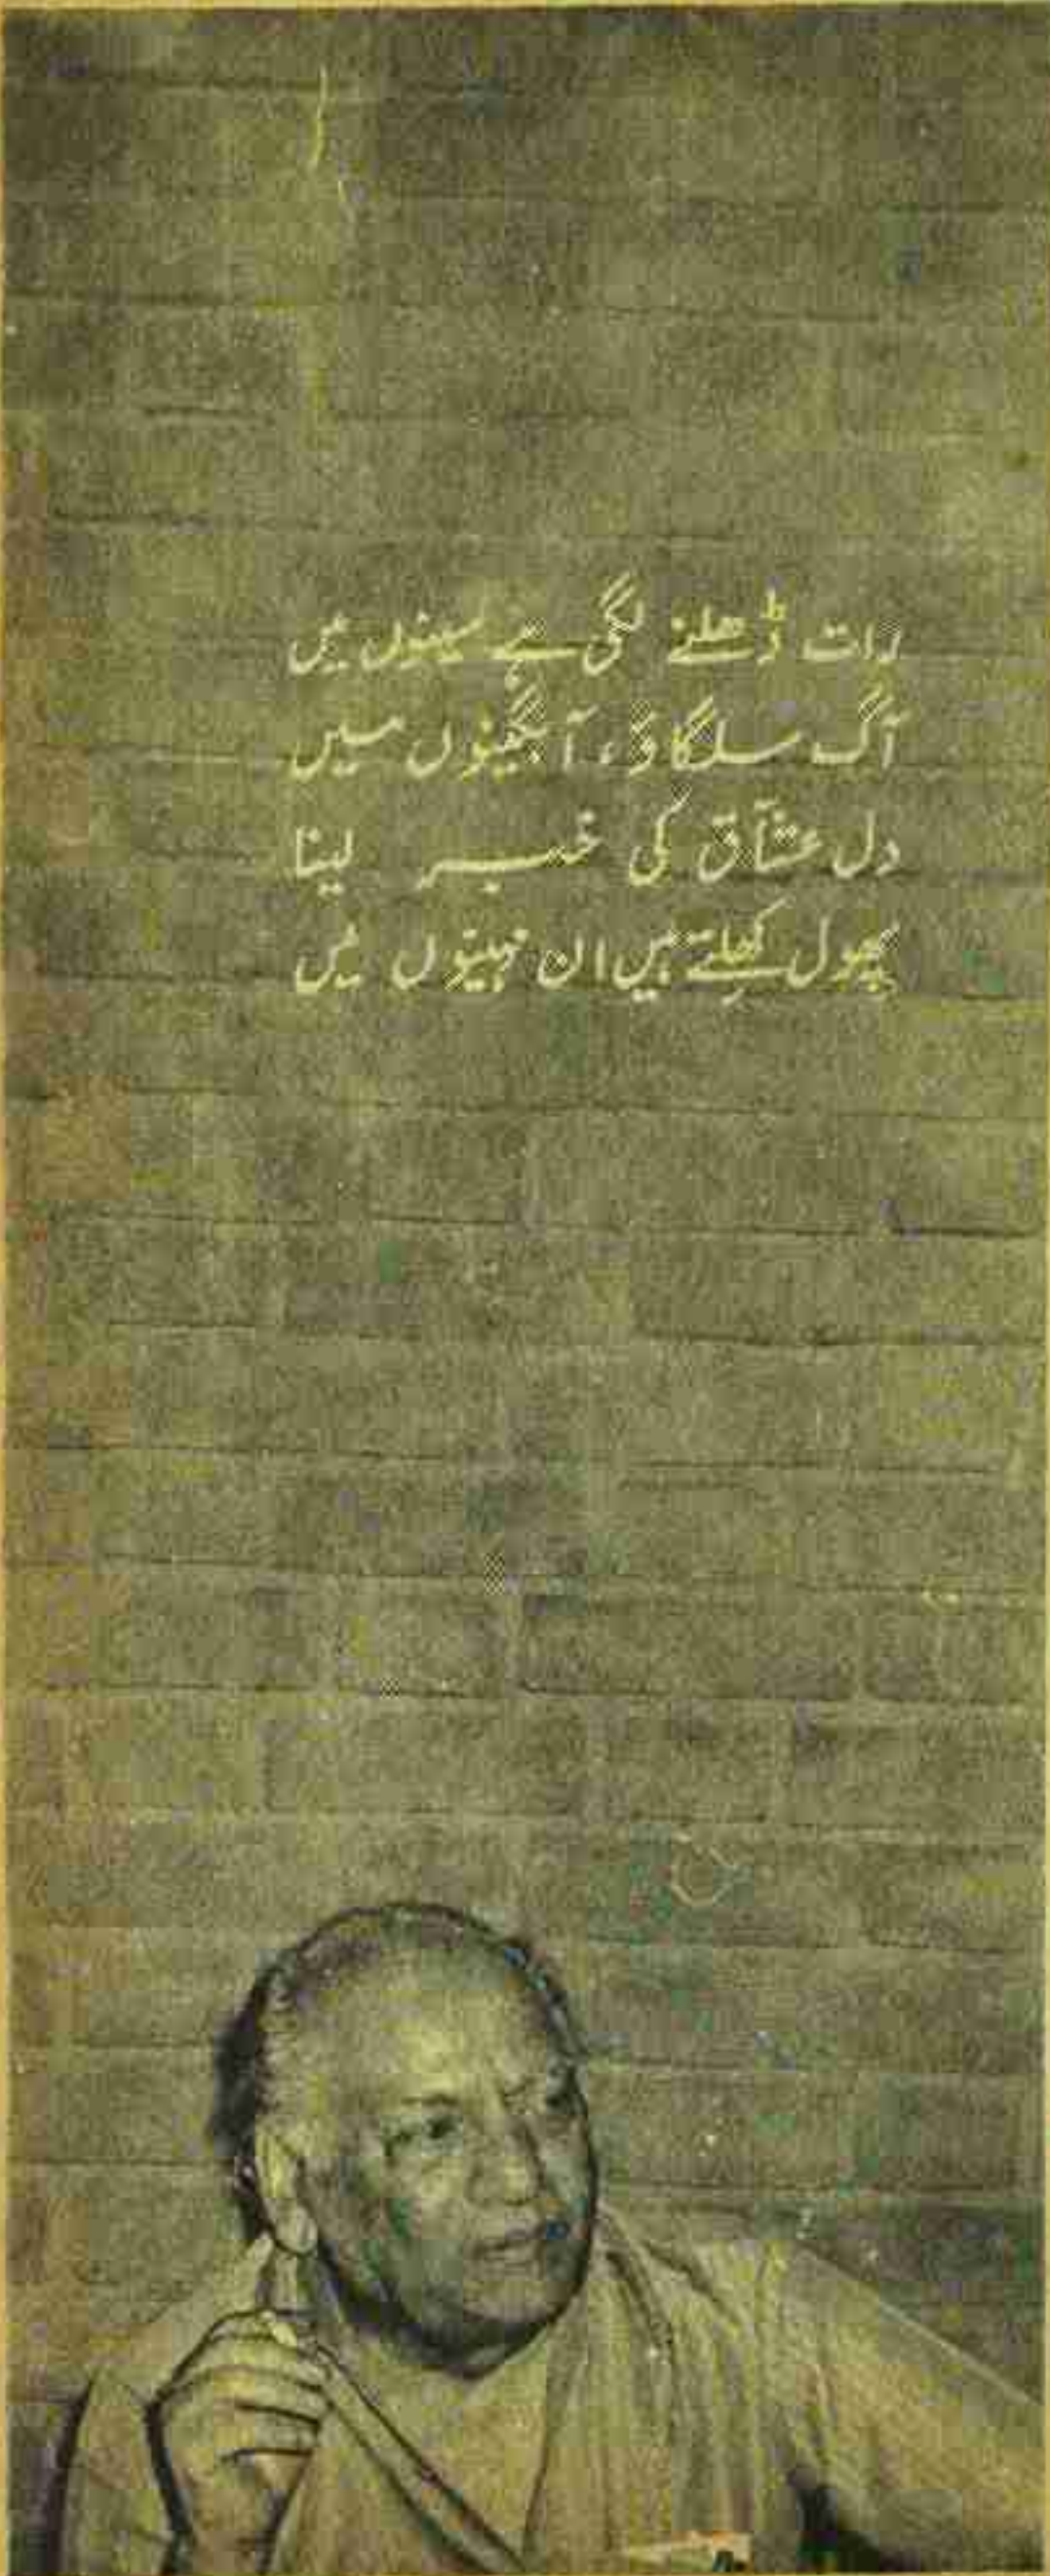 رات ڈھلنے لگی ہے سینوں میں
آگ سلگاؤ، آبگینوں میں
دل عشّاق کی خبر لینا
پھول کھلتے ہیں ان مہینوں میں